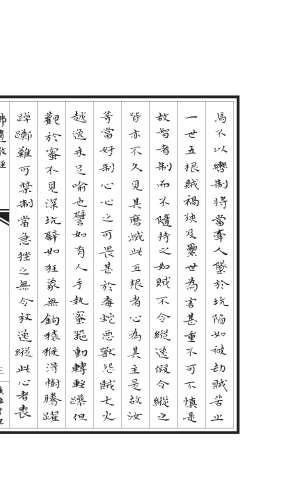 馬不以轡制將當牽人墜於坑陷如被劫賊苦止
一世五根賊禍殃及累世為害甚重不可不慎是
故智者制而不隨持之如賊不令縱逸假令縱之
皆亦不久見其磨滅此五根者心為其主是故汝
等當好制心心之可畏甚於毒蛇惡獸怨賊大火
越逸未足喻也譬如有人手執蜜器動轉輕躁但
觀於蜜不見深坑譬如狂象無鉤猿猴得樹騰躍
踔躑難可禁制當急挫之無令放逸縱此心者喪
三